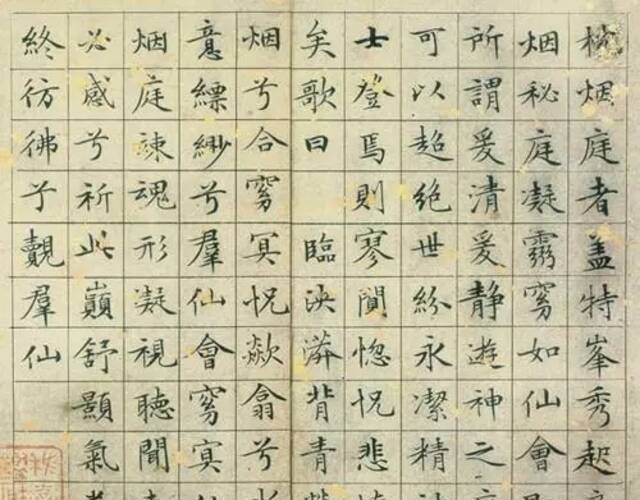 枕烟庭者盖特峯秀起
烟秘庭凝窅如仙會
所謂爰清爰静遊神之
可以超絶世紛永潔精
士登焉則寥闃惚怳悲
矣歌曰臨泱漭背青
烟兮合窅冥怳欻翕兮
意縹緲兮羣仙會窅冥
烟庭竦魂形凝視聽聞
必感兮祈此巔舒顥氣
終彷彿兮覿羣仙